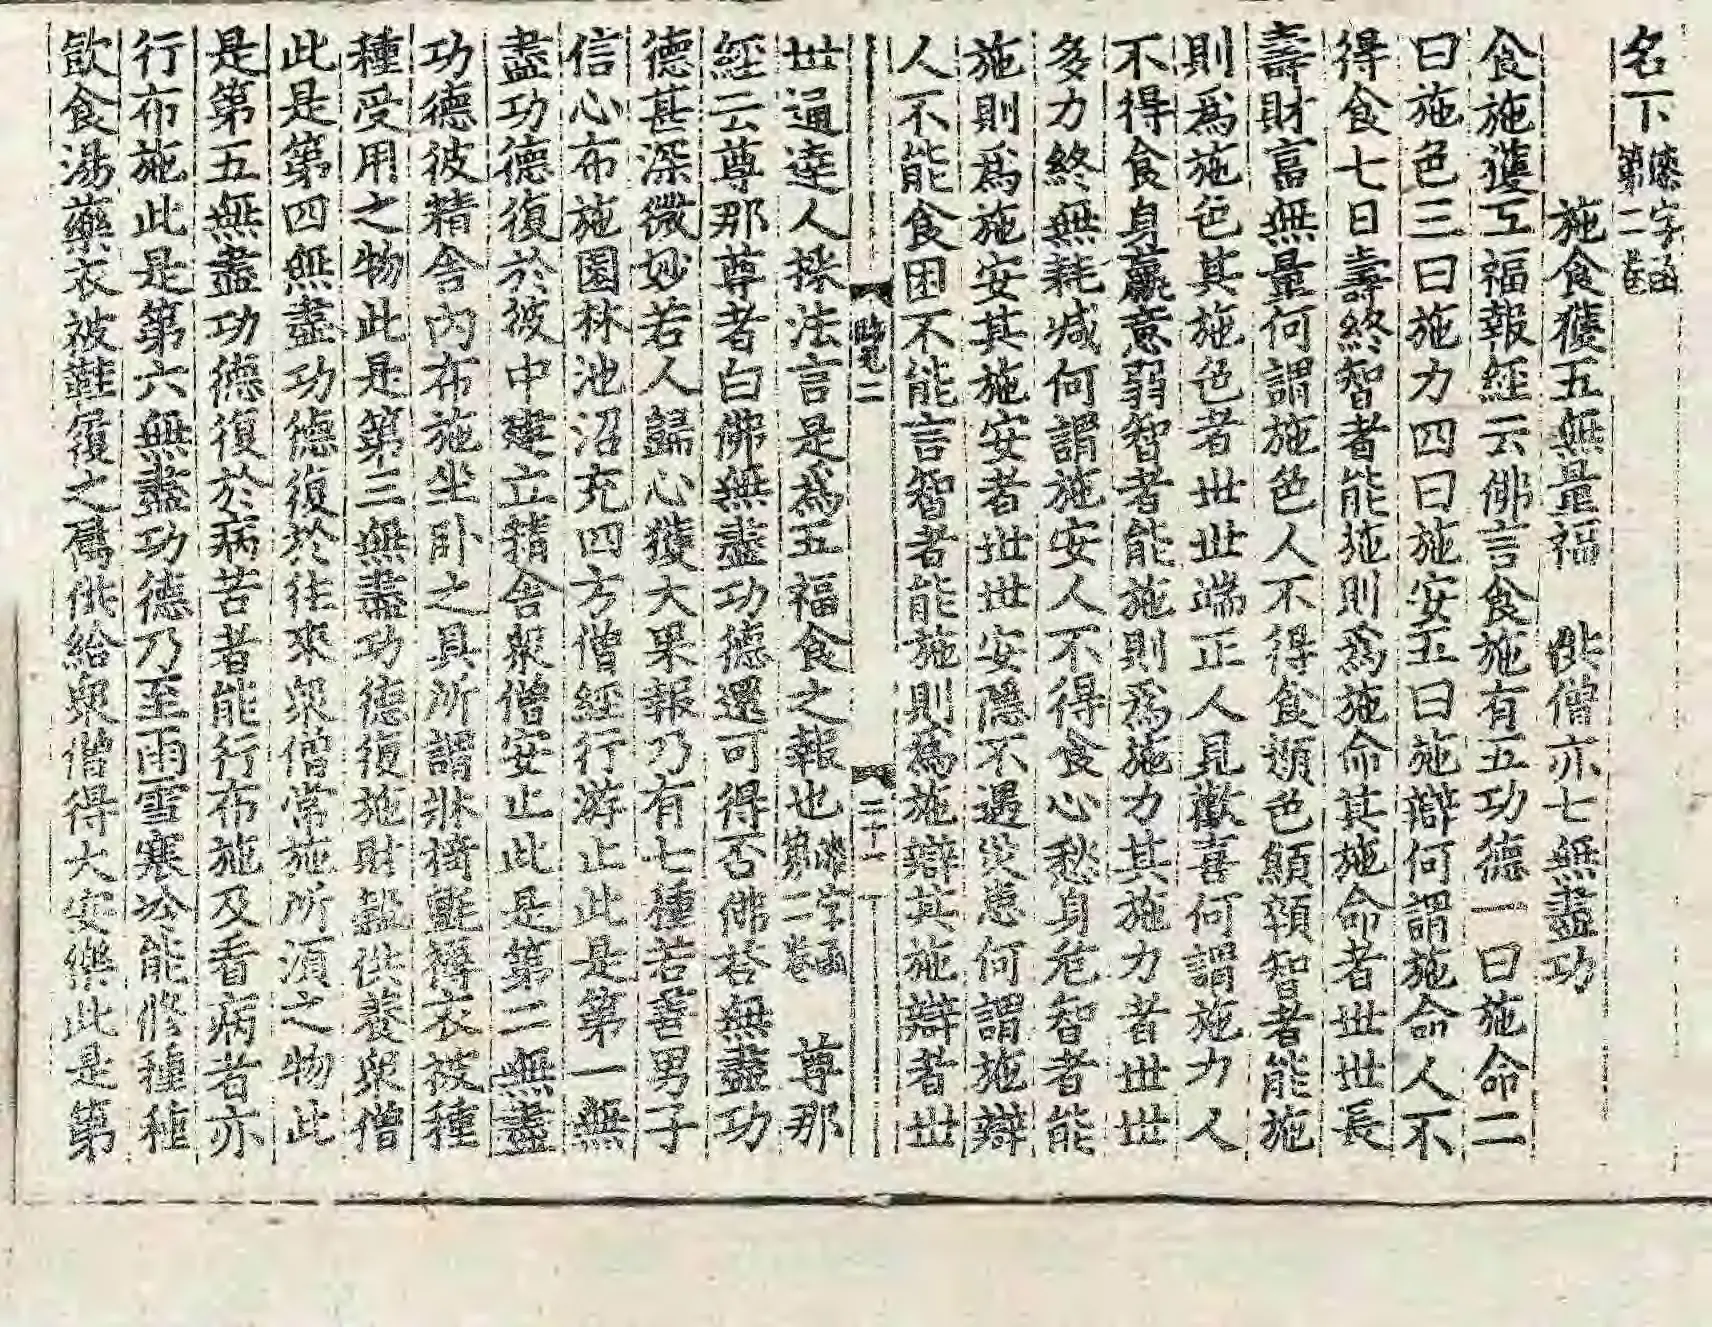 名下漆字函第二卷
施食獲五無量福 供僧亦七無盡功
食施獲五福報經云佛言食施有五功德一曰施命二
曰施色三曰施力四曰施安五曰施辯何謂施命人不
得食七日壽終智者能施則爲施命其施命者世世長
壽財富無量何謂施色人不得食顏色顦顇智者能施
則爲施色其施色者世世端正人見歡喜何謂施力人
不得食身羸意弱智者能施則爲施力其施力者世世
多力終無耗減何謂施安人不得食心愁身危智者能
施則爲施安其施安者世世安隱不遇災患何謂施辯
人不能食困不能言智者能施則爲施辯其施辯者世
二 二十一
世通達人揬法言是爲五福食之報也漆字函第二卷 尊那
經云尊那尊者白佛無盡功德還可得否佛答無盡功
德甚深微妙若人歸心獲大果報乃有七種若善男子
信心布施園林池沼充四方僧經行游止此是第一無
盡功德復於彼中建立精舍衆僧安止此是第二無盡
功德彼精舍內布施坐卧之具所謂牀椅氈褥衣被種
種受用之物此是第三無盡功德復施財穀供養衆僧
此是第四無盡功德復於往來衆僧常施所須之物此
是第五無盡功德復於病苦者能行布施及看病者亦
行布施此是第六無盡功德乃至雨雪寒冷能修種種
飲食湯藥衣被鞋履之屬供給衆僧得大安樂此是第